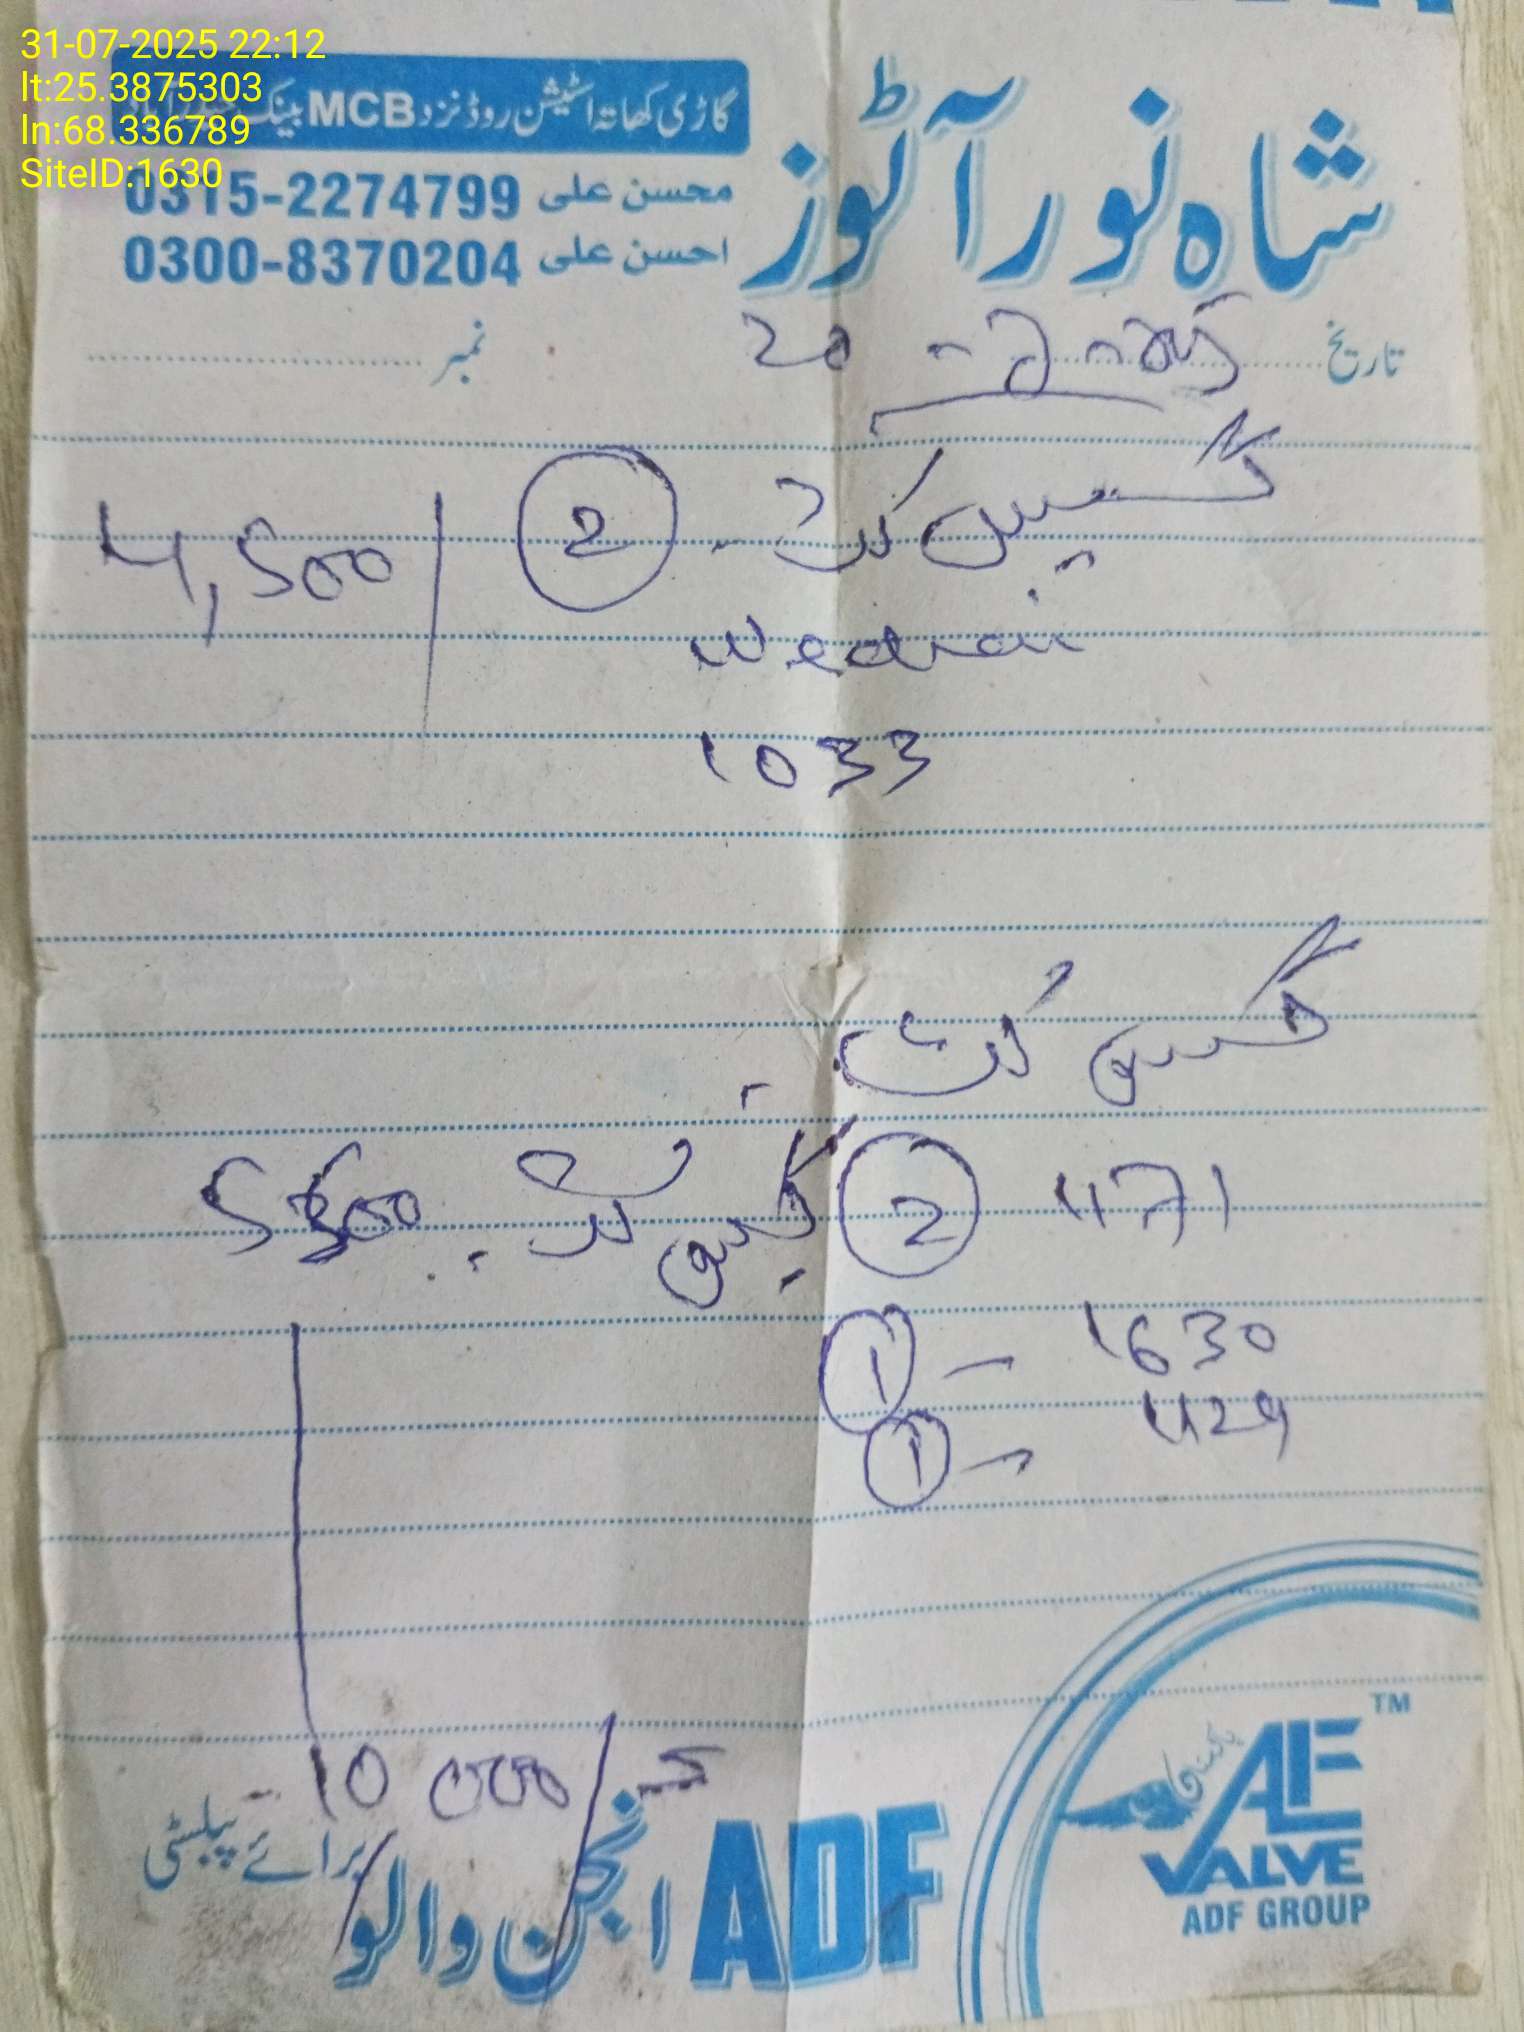 31-07-2025 22:12
lt:25.3875303
ln:68.336789
SiteID:1630
شاہ نور آٹوز
گاڑی کھاتہ اسٹیشن روڈ نزد MCB بینک
محسن علی 0315-2274799
احسن علی 0300-8370204
تاریخ
نمبر
20
کٹ - 2 4,500/
1033
کٹ
1171 2 کٹ
1630 - 1
1129 - 1
10 000/
ADF انجن والو
برائے پبلسٹی
AE
TM
VALVE
ADF GROUP